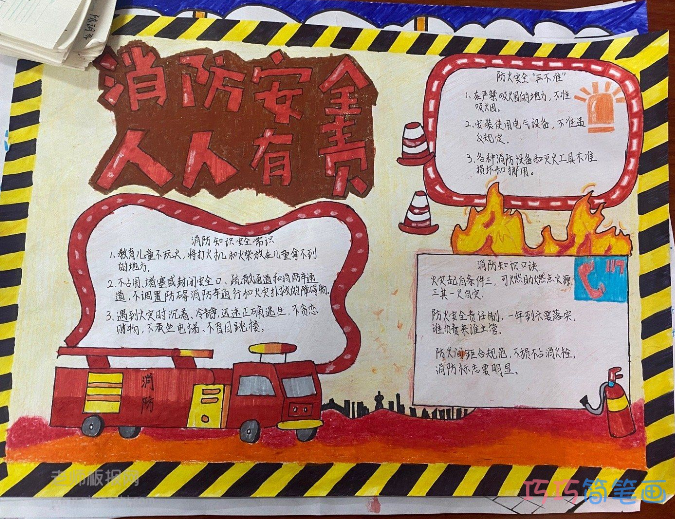 消防安全
人人有责
防火安全"三不准"
1、在严禁吸烟的地方，不准
吸烟。
2、安装使用电气设备，不准违
反规定。
3、各种消防设备和灭火工具不准
损坏和挪用。
消防知识安全常识
1、教育儿童不玩火，将打火机和火柴放在儿童拿不到
的地方。
2、不占用、堵塞或封闭安全口、疏散通道和消防车通
道、不设置妨碍消防车通行和火灾扑救的障碍物。
3、遇到火灾时沉着、冷静、迅速正确逃生，不贪恋
财物、不乘坐电梯、不盲目跳楼。
消防知识口诀
119
火灾起白条件三，可燃助燃点火源
三者一
防火安全责任制，一年到头要落实，
谁负责来谁主管。
不损不占消火栓，
消防标志要明显。
消防
老师板报网
巧巧简笔画